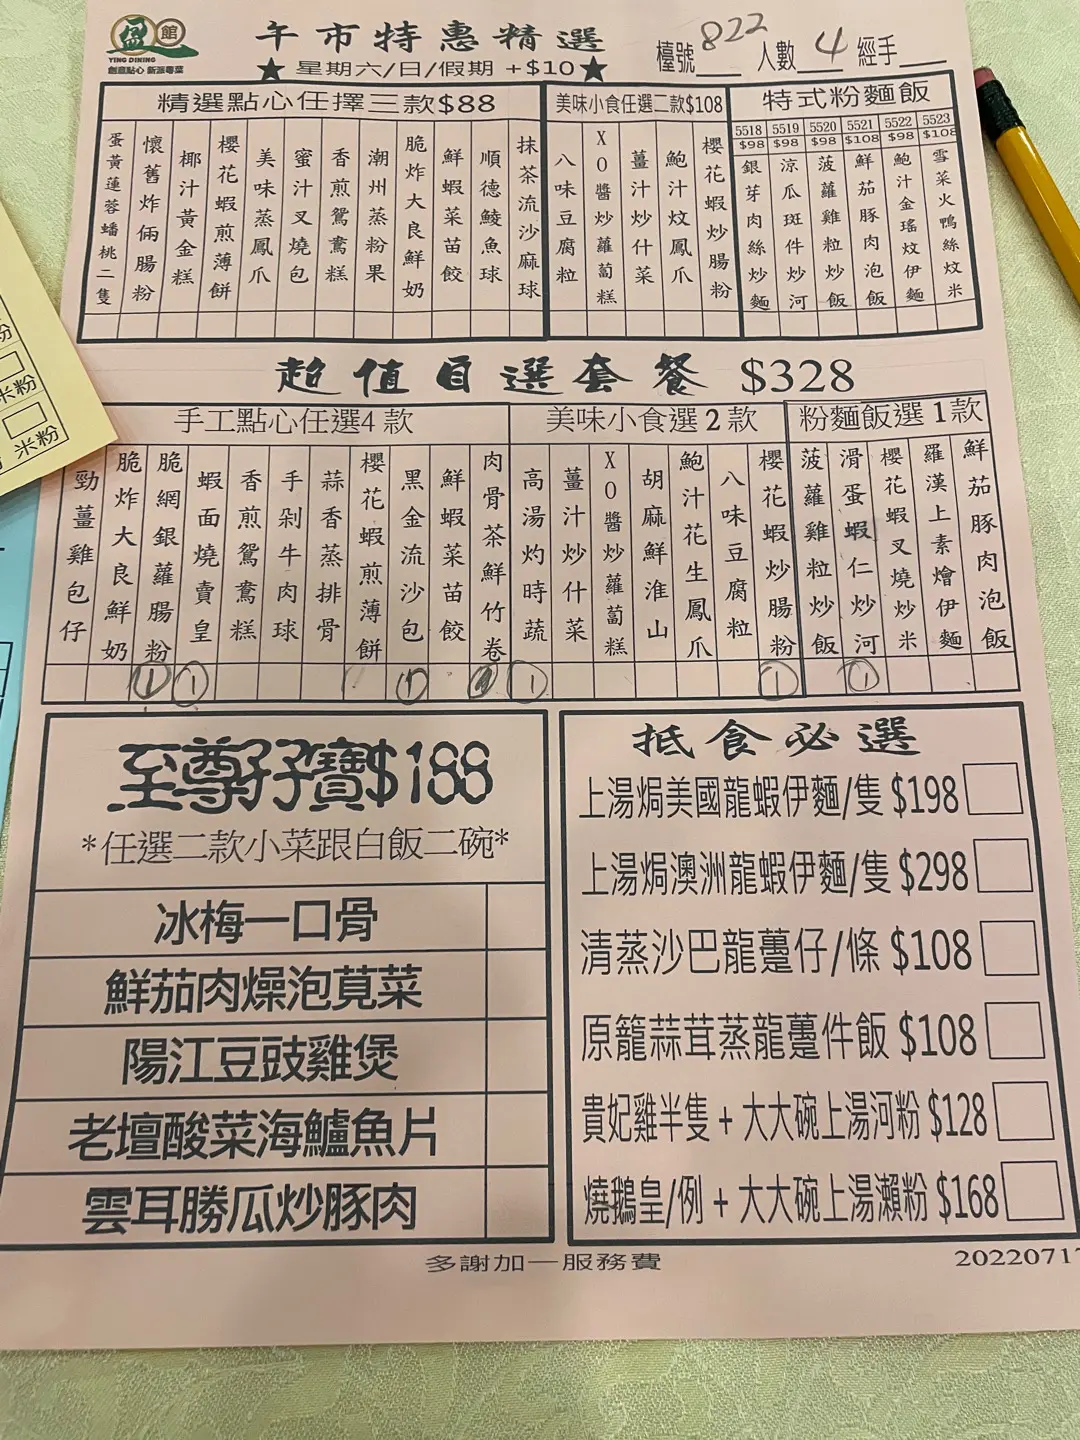 盈館
YING DINING
創意點心 新派粵菜
午市特惠精選
★星期六/日/假期 +$10★
檯號 822 人數 4 經手
精選點心任擇三款$88
蛋黃蓮蓉蟠桃二隻
懷舊炸倆腸粉
椰汁黃金糕
櫻花蝦煎薄餅
美味蒸鳳爪
蜜汁叉燒包
香煎鴛鴦糕
潮州蒸粉果
脆炸大良鮮奶
鮮蝦菜苗餃
順德鯪魚球
抹茶流沙麻球
美味小食任選二款$108
八味豆腐粒
XO醬炒蘿蔔糕
薑汁炒什菜
鮑汁炆鳳爪
櫻花蝦炒腸粉
特式粉麵飯
5518 $98 銀芽肉絲炒麵
5519 $98 涼瓜斑件炒河
5520 $98 菠蘿雞粒炒飯
5521 $108 鮮茄豚肉泡飯
5522 $98 鮑汁金瑤炆伊麵
5523 $108 雪菜火鴨絲炆米
超值自選套餐 $328
手工點心任選4款
勁薑雞包仔
脆炸大良鮮奶
脆網銀蘿腸粉 1
蝦面燒賣皇 1
香煎鴛鴦糕
手剁牛肉球
蒜香蒸排骨
櫻花蝦煎薄餅
黑金流沙包 1
鮮蝦菜苗餃
肉骨茶鮮竹卷
美味小食選2款
高湯灼時蔬 1
薑汁炒什菜
XO醬炒蘿蔔糕
胡麻鮮淮山
鮑汁花生鳳爪
八味豆腐粒
櫻花蝦炒腸粉 1
粉麵飯選1款
菠蘿雞粒炒飯
滑蛋蝦仁炒河 1
櫻花蝦叉燒炒米
羅漢上素燴伊麵
鮮茄豚肉泡飯
至尊孖寶$188
*任選二款小菜跟白飯二碗*
冰梅一口骨
鮮茄肉燥泡莧菜
陽江豆豉雞煲
老壇酸菜海鱸魚片
雲耳勝瓜炒豚肉
抵食必選
上湯焗美國龍蝦伊麵/隻 $198
上湯焗澳洲龍蝦伊麵/隻 $298
清蒸沙巴龍躉仔/條 $108
原籠蒜茸蒸龍躉件飯 $108
貴妃雞半隻 + 大大碗上湯河粉 $128
燒鵝皇/例 + 大大碗上湯瀨粉 $168
多謝加一服務費
20220717
粉
米粉
米粉